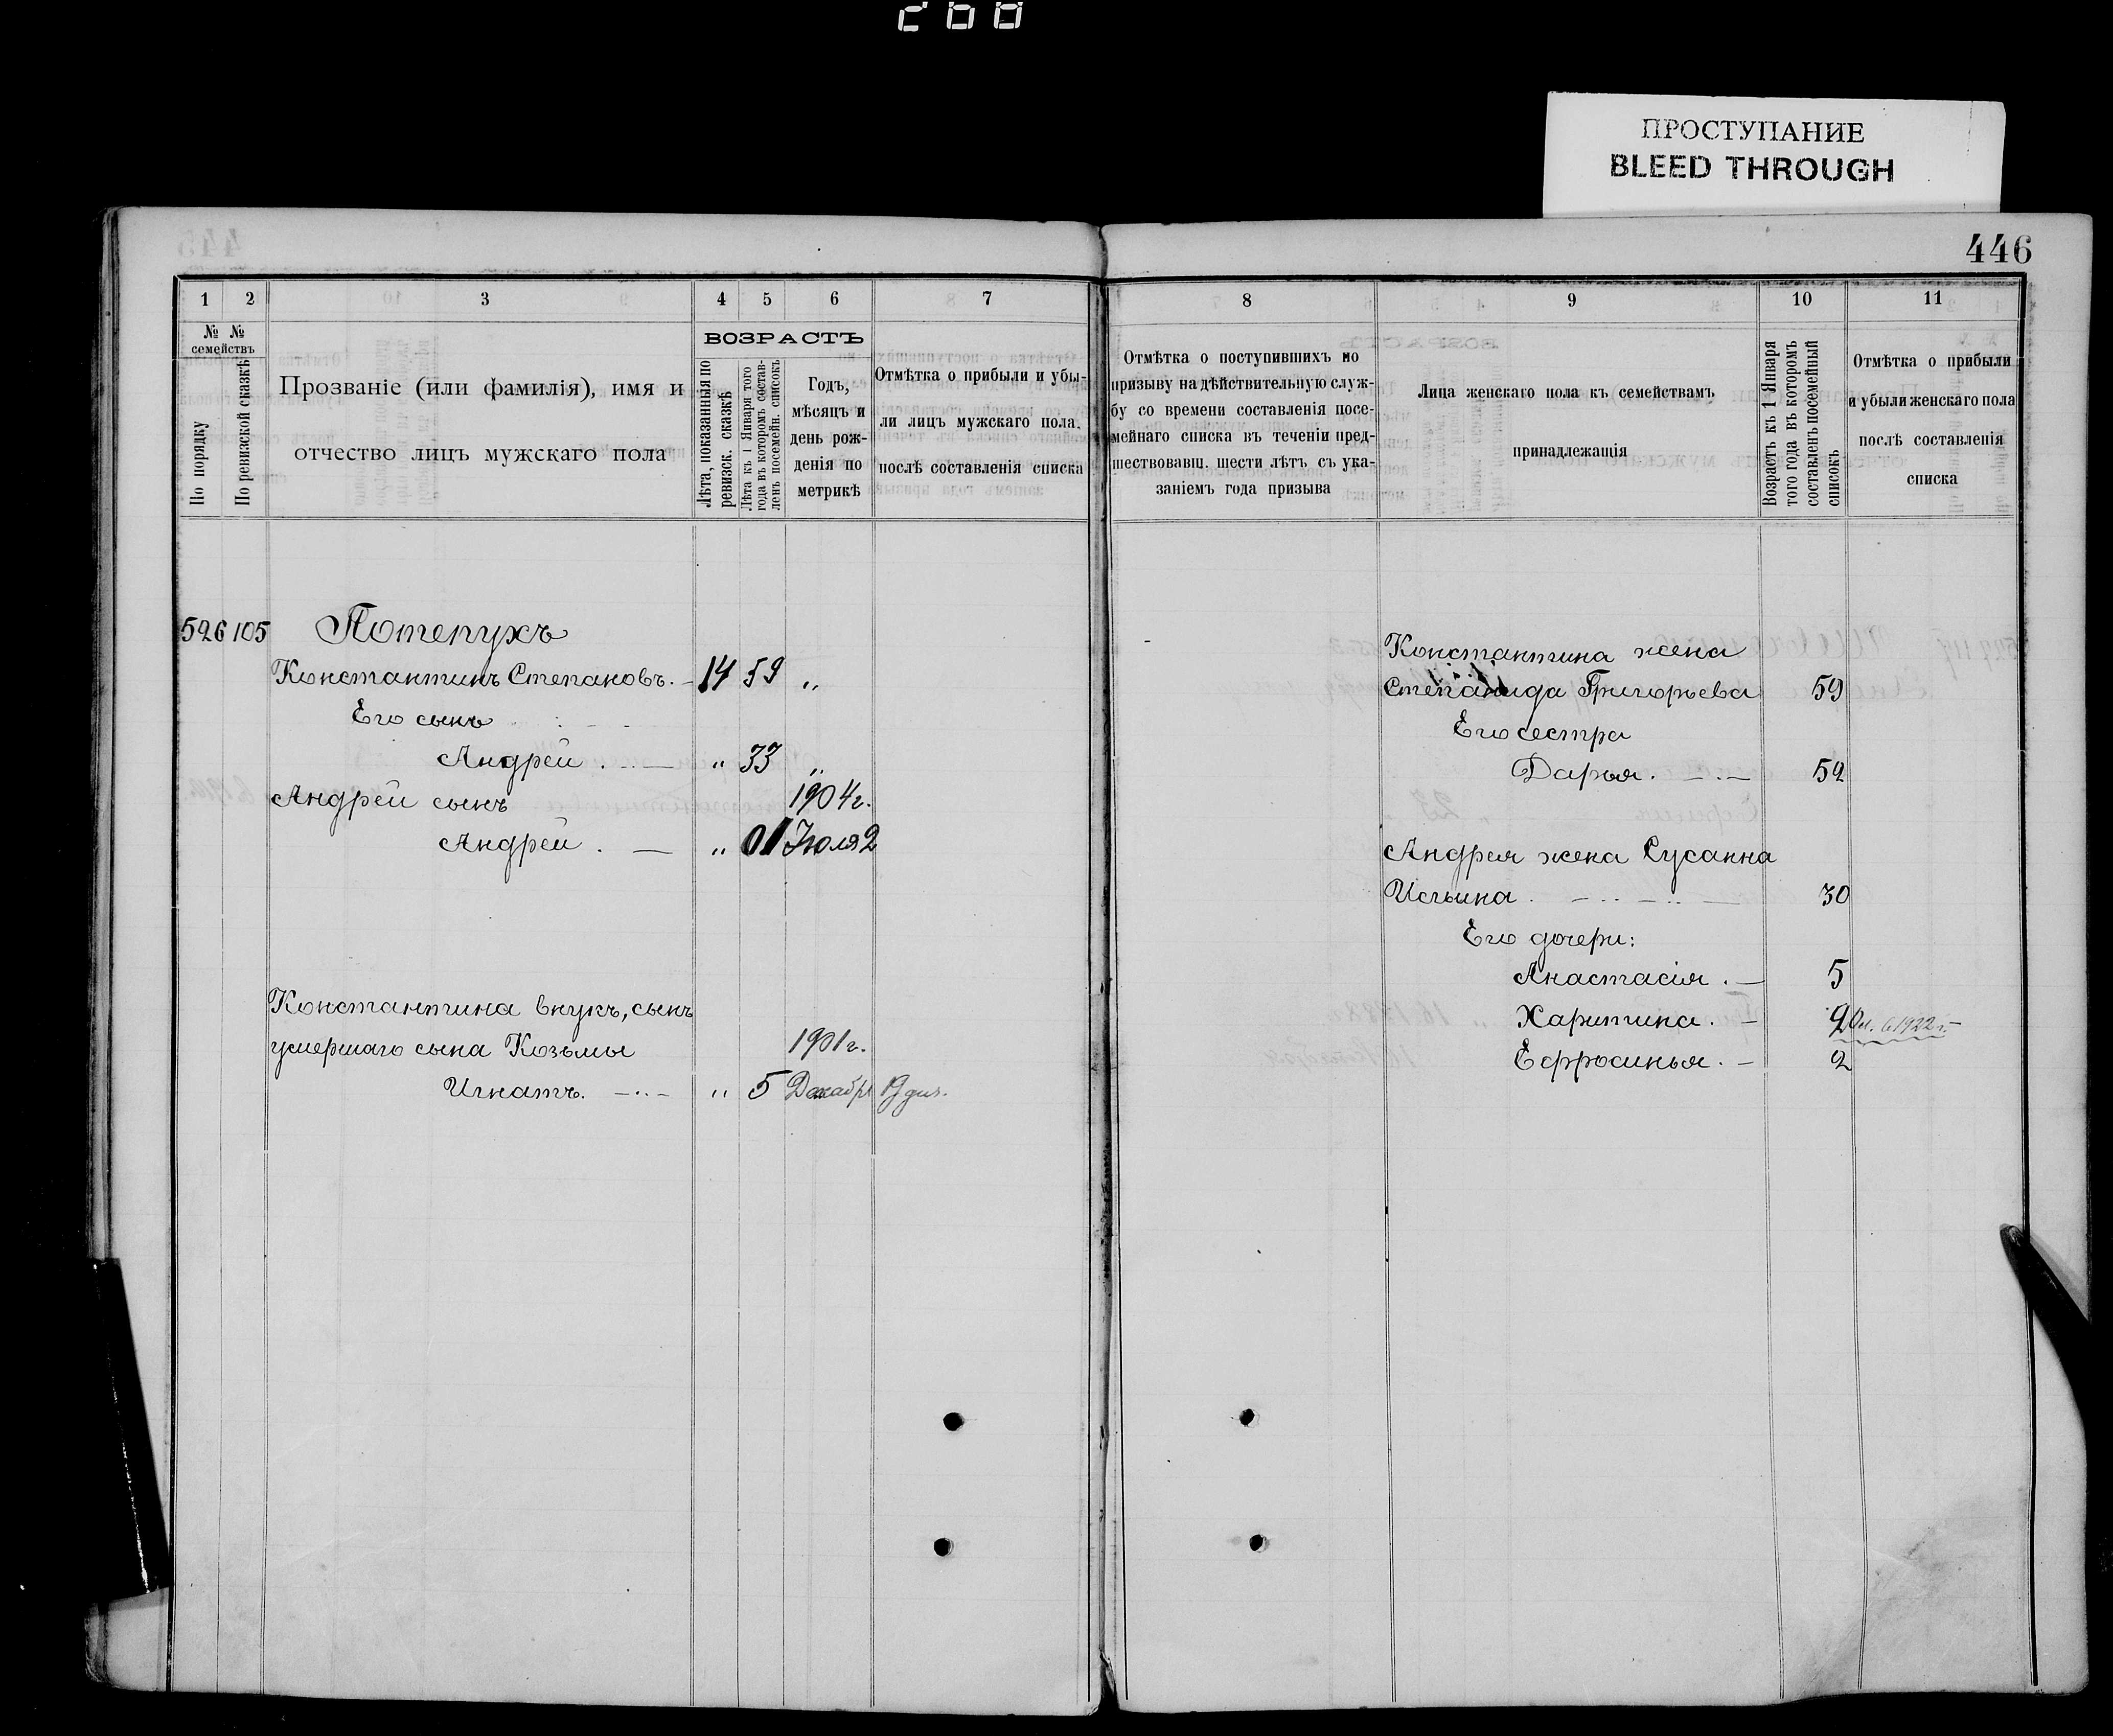 200
ПРОСТУПАНИЕ
BLEED THROUGH
446
1 2 3 4 5 6 7
№ №
семействъ
По порядку
По ревизской сказкѣ
Прозваніе (или фамилія), имя и
отчество лицъ мужскаго пола
ВОЗРАСТЪ
Лѣта, показанныя по
ревизск. сказкѣ
Лѣта къ 1 Января того
года въ которомъ состав-
ленъ посемейн. списокъ
Годъ,
мѣсяцъ и
день рож-
денія по
метрикѣ
Отмѣтка о прибыли и убы-
ли лицъ мужскаго пола,
послѣ составленія списка
526 105 Потепухъ
Константинъ Степановъ. — 14 59 „
Его сынъ
Андрей . — „ 33 „
Андрей сынъ 1904г.
Андрей . — „ 01 Іюля 2
Константина внукъ, сынъ
умершаго сына Козьмы 1901г.
Игнатъ. — „ 5 Декабря 19 дня.
8 9 10 11
Отмѣтка о поступившихъ по
призыву на дѣйствительную служ-
бу со времени составленія посе-
мейнаго списка въ теченіи пред-
шествовавш. шести лѣтъ съ ука-
заніемъ года призыва
Лица женскаго пола къ семействамъ
принадлежащія
Возрастъ къ 1 Января
того года въ которомъ
составленъ посемейный
списокъ
Отмѣтка о прибыли
и убыли женскаго пола
послѣ составленія
списка
Константина жена
Степанида Григорьева 59
Его сестра
Дарья. — 52
Андрея жена Сусанна
Ильина . — 30
Его дочери:
Анастасія . — 5
Харитина. — 2 1922 г.
Ефросинья. — 2